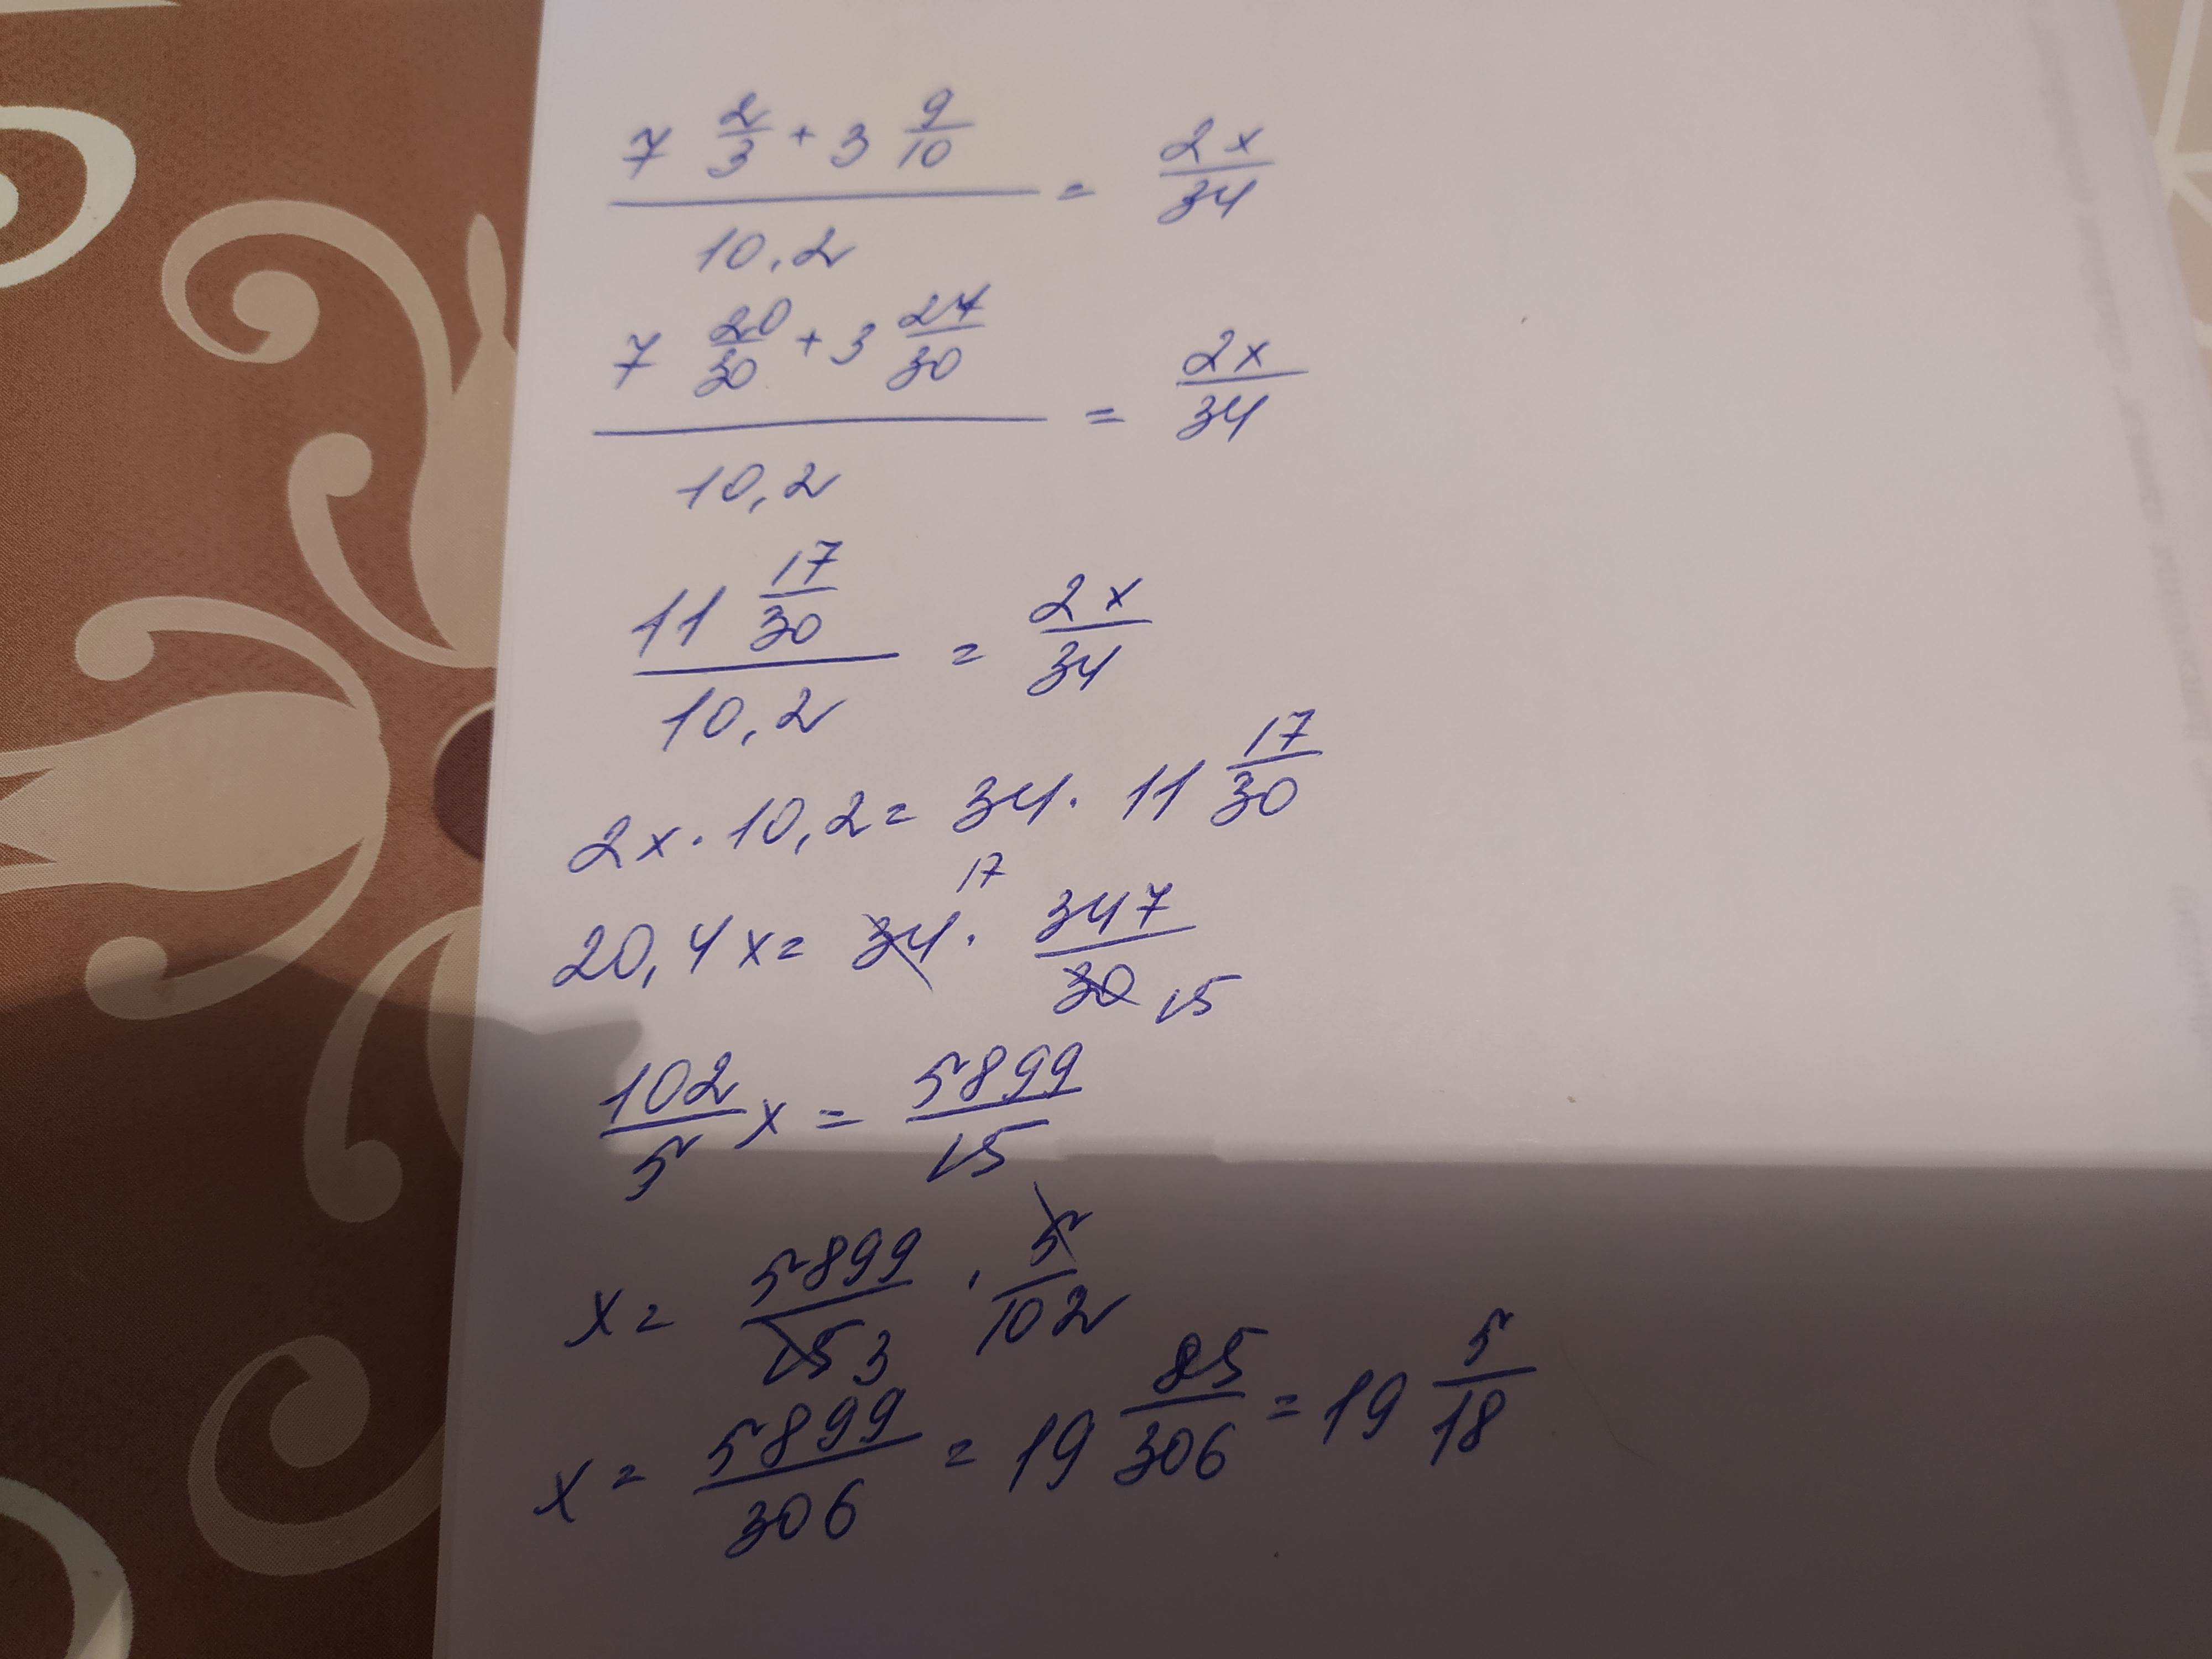 7 2/3 + 3 9/10 / 10,2 = 2x/34
7 20/30 + 3 27/30 / 10,2 = 2x/34
11 17/30 / 10,2 = 2x/34
2x · 10,2 = 34 · 11 17/30
20,4x = 34 17 · 347/30 15
102/5 x = 5899/15
x = 5899/15 3 · 5/102
x = 5899/306 = 19 85/306 = 19 5/18